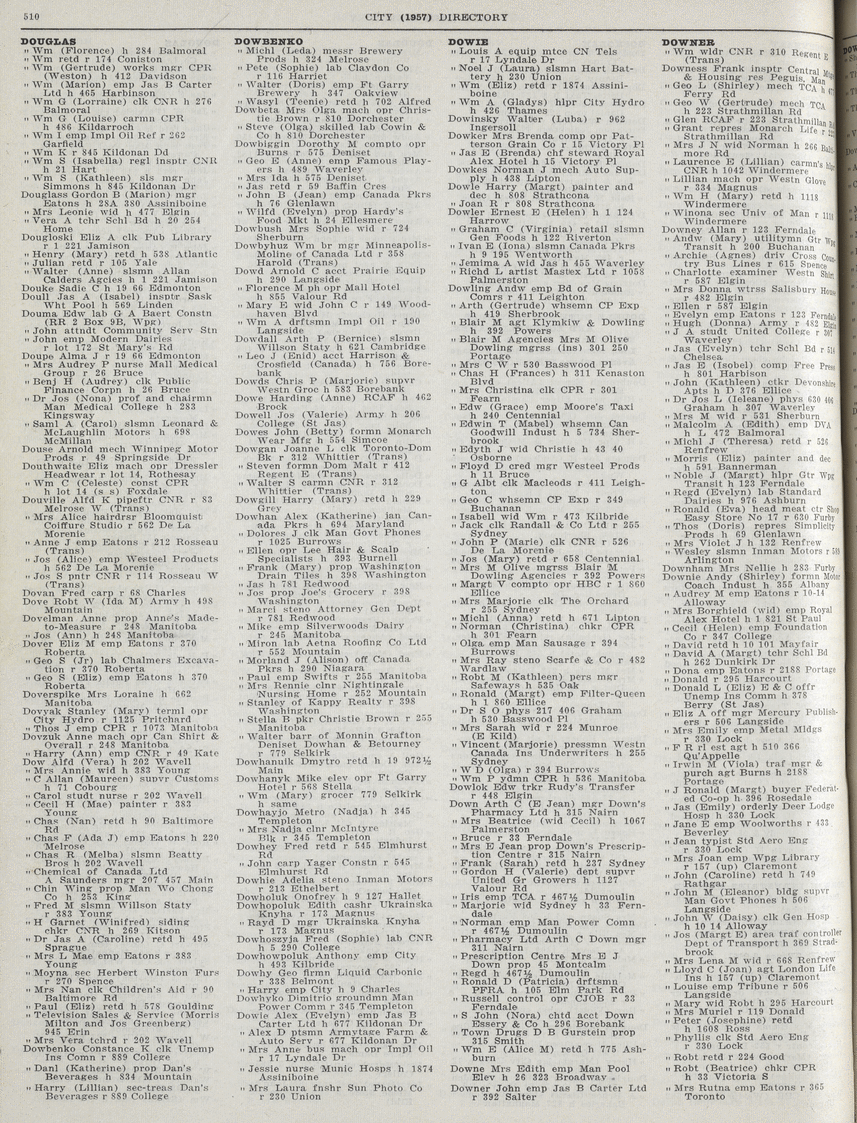 510
CITY (1957) DIRECTORY
DOUGLAS
" Wm (Florence) h 284 Balmoral
" Wm retd r 174 Coniston
" Wm (Gertrude) works mgr CPR
(Weston) h 412 Davidson
" Wm (Marion) emp Jas B Carter
Ltd h 465 Harbinson
" Wm G (Lorraine) clk CNR h 276
Balmoral
" Wm G (Louise) carmn CPR
h 486 Kildarroch
" Wm I emp Impl Oil Ref r 262
Garfield
" Wm K r 845 Kildonan Dd
" Wm S (Isabella) regl insptr CNR
h 21 Hart
" Wm S (Kathleen) sls mgr
Simmons h 845 Kildonan Dr
Douglass Gordon B (Marion) mgr
Eatons h 28A 380 Assiniboine
" Mrs Leonie wid h 477 Elgin
" Vera A tchr Schl Bd h 20 254
Home
Dougloski Eliz A clk Pub Library
r 1 221 Jamison
" Henry (Mary) retd h 538 Atlantic
" Julian retd r 105 Yale
" Walter (Anne) slsmn Allan
Calders Agcies h 1 221 Jamison
Douke Sadie C h 19 66 Edmonton
Doull Jas A (Isabel) insptr Sask
Wht Pool h 569 Linden
Douma Edw lab G A Baert Constn
(RR 2 Box 9B, Wpg)
" John attndt Community Serv Stn
" John emp Modern Dairies
r lot 172 St Mary's Rd
Doupe Alma J r 19 66 Edmonton
" Mrs Audrey P nurse Mall Medical
Group r 26 Bruce
" Benj H (Audrey) clk Public
Finance Corpn h 26 Bruce
" Dr Jos (Nona) prof and chairmn
Man Medical College h 283
Kingsway
" Saml A (Carol) slsmn Leonard &
McLaughlin Motors h 698
McMillan
Douse Arnold mech Winnipeg Motor
Prods r 49 Springside Dr
Douthwaite Eliz mach opr Dressler
Headwear r lot 14, Rothesay
" Wm C (Celeste) const CPR
h lot 14 (s s) Foxdale
Douville Alfd K pipeftr CNR r 83
Melrose W (Trans)
" Mrs Alice hairdrsr Bloomquist
Coiffure Studio r 562 De La
Morenie
" Anne J emp Eatons r 212 Rosseau
(Trans)
" Jos (Alice) emp Westeel Products
h 562 De La Morenie
" Jos S pntr CNR r 114 Rosseau W
(Trans)
Dovan Fred carp r 68 Charles
Dove Robt W (Ida M) Army h 498
Mountain
Dovelman Anne prop Anne's Made-
to-Measure r 248 Manitoba
" Jos (Ann) h 248 Manitoba
Dover Eliz M emp Eatons r 370
Roberta
" Geo S (Jr) lab Chalmers Excava-
tion r 370 Roberta
" Geo S (Eliz) emp Eatons h 370
Roberta
Doverspike Mrs Loraine h 662
Manitoba
Dovyak Stanley (Mary) terml opr
City Hydro r 1125 Pritchard
" Thos J emp CPR r 1073 Manitoba
Dovzuk Anne mach opr Can Shirt &
Overall r 248 Manitoba
" Harry (Ann) emp CNR r 49 Kate
Dow Alfd (Vera) h 202 Wavell
" Mrs Annie wid h 383 Young
" C Allan (Maureen) supvr Customs
h 71 Cobourg
" Carol studt nurse r 202 Wavell
" Cecil H (Mae) painter r 383
Young
" Chas (Nan) retd h 90 Baltimore
Rd
" Chas F (Ada J) emp Eatons h 220
Melrose
" Chas R (Melba) slsmn Beatty
Bros h 202 Wavell
" Chemical of Canada Ltd
A Saunders mgr 207 457 Main
" Chin Wing prop Man Wo Chong
Co h 253 King
" Fred M slsmn Willson Staty
r 383 Young
" H Garnet (Winifred) siding
chkr CNR h 269 Kitson
" Dr Jas A (Caroline) retd h 495
Sprague
" Mrs L Mae emp Eatons r 383
Young
" Moyna sec Herbert Winston Furs
r 270 Spence
" Mrs Nan clk Children's Aid r 90
Baltimore Rd
" Paul (Eliz) retd h 578 Goulding
" Television Sales & Service (Morris
Milton and Jos Greenberg)
945 Erin
" Mrs Vera tchrd r 202 Wavell
Dowbenko Constance K clk Unemp
Ins Comn r 889 College
" Danl (Katherine) prop Dan's
Beverages h 834 Mountain
" Harry (Lillian) sec-treas Dan's
Beverages r 889 College
DOWBENKO
" Michl (Leda) messr Brewery
Prods h 324 Melrose
" Pete (Sophie) lab Claydon Co
r 116 Harriet
" Walter (Doris) emp Ft Garry
Brewery h 347 Oakview
" Wasyl (Teenie) retd h 702 Alfred
Dowbeta Mrs Olga mach opr Chris-
tie Brown r 810 Dorchester
" Steve (Olga) skilled lab Cowin &
Co h 810 Dorchester
Dowbiggin Dorothy M compto opr
Burns r 575 Deniset
" Geo E (Anne) emp Famous Play-
ers h 489 Waverley
" Mrs Ida h 575 Deniset
" Jas retd r 59 Baffin Cres
" John B (Jean) emp Canada Pkrs
h 76 Glenlawn
" Wilfd (Evelyn) prop Hardy's
Food Mkt h 24 Ellesmere
Dowbush Mrs Sophie wid r 724
Sherburn
Dowbyhuz Wm br mgr Minneapolis-
Moline of Canada Ltd r 358
Harold (Trans)
Dowd Arnold C acct Prairie Equip
h 290 Langside
" Florence M ph opr Mall Hotel
h 855 Valour Rd
" Mary E wid John C r 149 Wood-
haven Blvd
" Wm A drftsmn Impl Oil r 190
Langside
Dowdall Arth P (Bernice) slsmn
Willson Staty h 621 Cambridge
" Leo J (Enid) acct Harrison &
Crosfield (Canada) h 756 Bore-
bank
Dowds Chris P (Marjorie) supvr
Westn Groc h 583 Borebank
Dowe Harding (Anne) RCAF h 462
Brock
Dowell Jos (Valerie) Army h 206
College (St Jas)
Dowes John (Betty) formn Monarch
Wear Mfg h 554 Simcoe
Dowgan Joanne L clk Toronto-Dom
Bk r 312 Whittier (Trans)
" Steven formn Dom Malt r 412
Regent E (Trans)
" Walter S carmn CNR r 312
Whittier (Trans)
Dowgill Harry (Mary) retd h 229
Grey
Dowhan Alex (Katherine) jan Can-
ada Pkrs h 694 Maryland
" Dolores J clk Man Govt Phones
r 1025 Burrows
" Ellen opr Lee Hair & Scalp
Specialists h 393 Burnell
" Frank (Mary) prop Washington
Drain Tiles h 398 Washington
" Jas h 781 Redwood
" Jos prop Joe's Grocery r 398
Washington
" Marci steno Attorney Gen Dept
r 781 Redwood
" Mike emp Silverwoods Dairy
r 245 Manitoba
" Miron lab Aetna Roofing Co Ltd
r 552 Mountain
" Morland J (Alison) off Canada
Pkrs h 290 Niagara
" Paul emp Swifts r 255 Manitoba
" Mrs Rennie clnr Nightingale
Nursing Home r 252 Mountain
" Stanley of Kappy Realty r 398
Washington
" Stella B pkr Christie Brown r 255
Manitoba
" Walter barr of Monnin Grafton
Deniset Dowhan & Betourney
r 779 Selkirk
Dowhanuik Dmytro retd h 19 972½
Main
Dowhanyk Mike elev opr Ft Garry
Hotel r 568 Stella
" Wm (Mary) grocer 779 Selkirk
h same
Dowhayjo Metro (Nadja) h 345
Templeton
" Mrs Nadja clnr McIntyre
Blk r 345 Templeton
Dowhey Fred retd r 545 Elmhurst
Rd
" John carp Yager Constn r 545
Elmhurst Rd
Dowhie Adelia steno Inman Motors
r 213 Ethelbert
Dowholuk Onofrey h 9 127 Hallet
Dowhopoluk Edith cashr Ukrainska
Knyha r 173 Magnus
" Rayd D mgr Ukrainska Knyha
r 173 Magnus
Dowhoszyja Fred (Sophie) lab CNR
h 5 290 College
Dowhowpoluk Anthony emp City
h 493 Kilbride
Dowhy Geo firmn Liquid Carbonic
r 338 Belmont
" Harry emp City h 9 Charles
Dowhyko Dimitrio groundmn Man
Power Comm r 345 Templeton
Dowie Alex (Evelyn) emp Jas B
Carter Ltd h 677 Kildonan Dr
" Alex D ptsmn Armytage Farm &
Auto Serv r 677 Kildonan Dr
" Mrs Anne bus mach opr Impl Oil
r 17 Lyndale Dr
" Jessie nurse Munic Hosps h 1874
Assiniboine
" Mrs Laura fnshr Sun Photo Co
r 230 Union
DOWIE
" Louis A equip mtce CN Tels
r 17 Lyndale Dr
" Noel J (Laura) slsmn Hart Bat-
tery h 230 Union
" Wm (Eliz) retd r 1874 Assini-
boine
" Wm A (Gladys) hlpr City Hydro
h 426 Thames
Dowinsky Walter (Luba) r 962
Ingersoll
Dowker Mrs Brenda comp opr Pat-
terson Grain Co r 15 Victory Pl
" Jas E (Brenda) chf steward Royal
Alex Hotel h 15 Victory Pl
Dowkes Norman J mech Auto Sup-
ply h 438 Lipton
Dowle Harry (Margt) painter and
dec h 808 Strathcona
" Joan R r 808 Strathcona
Dowler Ernest E (Helen) h 1 124
Harrow
" Graham C (Virginia) retail slsmn
Gen Foods h 122 Riverton
" Ivan E (Iona) slsmn Canada Pkrs
h 9 195 Wentworth
" Jemima A wid Jas h 455 Waverley
" Richd L artist Mastex Ltd r 1058
Palmerston
Dowling Andw emp Bd of Grain
Comrs r 411 Leighton
" Arth (Gertrude) whsemn CP Exp
h 419 Sherbrook
" Blair M agt Klymkiw & Dowling
h 392 Powers
" Blair M Agencies Mrs M Olive
Dowling mgrss (ins) 301 250
Portage
" Mrs C W r 530 Basswood Pl
" Chas H (Frances) h 311 Kenaston
Blvd
" Mrs Christina clk CPR r 301
Fearn
" Edw (Grace) emp Moore's Taxi
h 240 Centennial
" Edwin T (Mabel) whsemn Can
Goodwill Indust h 5 734 Sher-
brook
" Edyth J wid Christie h 43 40
Osborne
" Floyd D cred mgr Westeel Prods
h 11 Bruce
" G Albt clk Macleods r 411 Leigh-
ton
" Geo C whsemn CP Exp r 349
Buchanan
" Isabel wid Wm r 473 Kilbride
" Jack clk Randall & Co Ltd r 255
Sydney
" John P (Marie) clk CNR r 526
De La Morenie
" Jos (Mary) retd r 658 Centennial
" Mrs M Olive mgrss Blair M
Dowling Agencies r 392 Powers
" Margt V compto opr HBC r 1 860
Ellice
" Mrs Marjorie clk The Orchard
r 255 Sydney
" Michl (Anna) retd h 671 Lipton
" Norman (Christina) chkr CPR
h 301 Fearn
" Olga emp Man Sausage r 394
Burrows
" Mrs Ray steno Scarfe & Co r 482
Wardlaw
" Robt M (Kathleen) pers mgr
Safeways h 535 Oak
" Ronald (Margt) emp Filter-Queen
h 1 860 Ellice
" Dr S O phys 217 406 Graham
h 530 Basswood Pl
" Mrs Sarah wid r 224 Munroe
(E Kild)
" Vincent (Marjorie) pressmn Westn
Canada Ins Underwriters h 255
Sydney
" W D (Olga) r 394 Burrows
" Wm P ydmn CPR h 536 Manitoba
Dowlok Edw trkr Rudy's Transfer
r 448 Elgin
Down Arth C (E Jean) mgr Down's
Pharmacy Ltd h 315 Nairn
" Mrs Beatrice (wid Cecil) h 1067
Palmerston
" Bruce r 33 Ferndale
" Mrs E Jean prop Down's Prescrip-
tion Centre r 315 Nairn
" Frank (Sarah) retd h 237 Sydney
" Gordon H (Valerie) dept supvr
United Gr Growers h 1127
Valour Rd
" Iris emp TCA r 467½ Dumoulin
" Marjorie wid Sydney h 33 Fern-
dale
" Norman emp Man Power Comn
r 467½ Dumoulin
" Pharmacy Ltd Arth C Down mgr
311 Nairn
" Prescription Centre Mrs E J
Down prop 45 Montcalm
" Regd h 467½ Dumoulin
" Ronald D (Patricia) drftsmn
PFRA h 105 Elm Park Rd
" Russell control opr CJOB r 33
Ferndale
" S John (Nora) chtd acct Down
Essery & Co h 296 Borebank
" Town Drugs D B Gurstein prop
315 Smith
" Wm E (Alice M) retd h 775 Ash-
burn
Downe Mrs Edith emp Man Pool
Elev h 26 323 Broadway
Downer John emp Jas B Carter Ltd
r 392 Salter
DOWNER
" Wm wldr CNR r 310 Regent E
(Trans)
Downess Frank insptr Central
& Housing res Peguis, Man
" Geo L (Shirley) mech TCA h
Perry Rd
" Geo W (Gertrude) mech TCA
h 223 Strathmillan Rd
" Glen RCAF r 223 Strathmillan Rd
" Grant repres Monarch Life r 223
Strathmillan Rd
" Mrs J N wid Norman h 266 Balti-
more Rd
" Laurence E (Lillian) carmn's hlpr
CNR h 1042 Windermere
" Lillian mach opr Westn Glove
r 334 Magnus
" Wm H (Mary) retd h 1118
Windermere
" Winona sec Univ of Man r 1118
Windermere
Downey Allan r 123 Ferndale
" Andw (Mary) utilitymn Gtr Wpg
Transit h 200 Buchanan
" Archie (Agnes) driv Cross Coun-
try Bus Lines r 615 Spence
" Charlotte examiner Westn Shirt
r 587 Elgin
" Mrs Donna wtrss Salisbury House
r 482 Elgin
" Ellen r 587 Elgin
" Evelyn emp Eatons r 123 Ferndale
" Hugh (Donna) Army r 482 Elgin
" J A studt United College r 307
Waverley
" Jas (Evelyn) tchr Schl Bd r 514
Chelsea
" Jas E (Isobel) comp Free Press
h 801 Harbison
" John (Kathleen) ctkr Devonshire
Apts h D 376 Ellice
" Dr Jos L (Ieleane) phys 630 406
Graham h 307 Waverley
" Mrs M wid r 531 Sherburn
" Malcolm A (Edith) emp DVA
h L 472 Balmoral
" Michl J (Theresa) retd r 526
Renfrew
" Morris (Eliz) painter and dec
h 591 Bannerman
" Noble J (Margt) hlpr Gtr Wpg
Transit h 123 Ferndale
" Regd (Evelyn) lab Standard
Dairies h 976 Ashburn
" Ronald (Eva) head meat ctr Shop
Easy Store No 17 r 630 Furby
" Thos (Doris) repres Simplicity
Prods h 69 Glenlawn
" Mrs Violet J h 132 Renfrew
" Wesley slsmn Inman Motors r 509
Arlington
Downham Mrs Nellie h 283 Furby
Downie Andy (Shirley) formn Motor
Coach Indust h 355 Albany
" Audrey M emp Eatons r 10-14
Alloway
" Mrs Borghield (wid) emp Royal
Alex Hotel h 1 821 St Paul
" Cecil (Helen) emp Foundation
Co r 347 College
" David retd h 10 101 Mayfair
" David A (Margt) tchr Schl Bd
h 262 Dunkirk Dr
" Dona emp Eatons r 2188 Portage
" Donald r 295 Harcourt
" Donald L (Eliz) E & C offr
Unemp Ins Comm h 378
Berry (St Jas)
" Eliz A off mgr Mercury Publish-
ers r 506 Langside
" Mrs Emily emp Metal Mldgs
r 330 Lock
" F R rl est agt h 510 366
Qu'Appelle
" Irwin M (Viola) traf mgr &
purch agt Burns h 2188
Portage
" J Ronald (Margt) buyer Federat-
ed Co-op h 396 Rosedale
" Jas (Emily) orderly Deer Lodge
Hosp h 330 Lock
" Jane E emp Woolworths r 433
Beverley
" Jean typist Std Aero Eng
r 330 Lock
" Mrs Joan emp Wpg Library
r 157 (up) Claremont
" John (Caroline) retd h 749
Rathgar
" John M (Eleanor) bldg supvr
Man Govt Phones h 506
Langside
" John W (Daisy) clk Gen Hosp
h 10 14 Alloway
" Jos (Margt E) area traf controller
Dept of Transport h 369 Strad-
brook
" Mrs Lena M wid r 668 Renfrew
" Lloyd C (Joan) agt London Life
Ins h 157 (up) Claremont
" Louise emp Tribune r 506
Langside
" Mary wid Robt h 295 Harcourt
" Mrs Muriel r 119 Donald
" Peter (Josephine) retd
h 1608 Ross
" Phyllis clk Std Aero Eng
r 330 Lock
" Robt retd r 224 Good
" Robt (Beatrice) chkr CPR
h 33 Victoria S
" Mrs Rutna emp Eatons r 365
Toronto